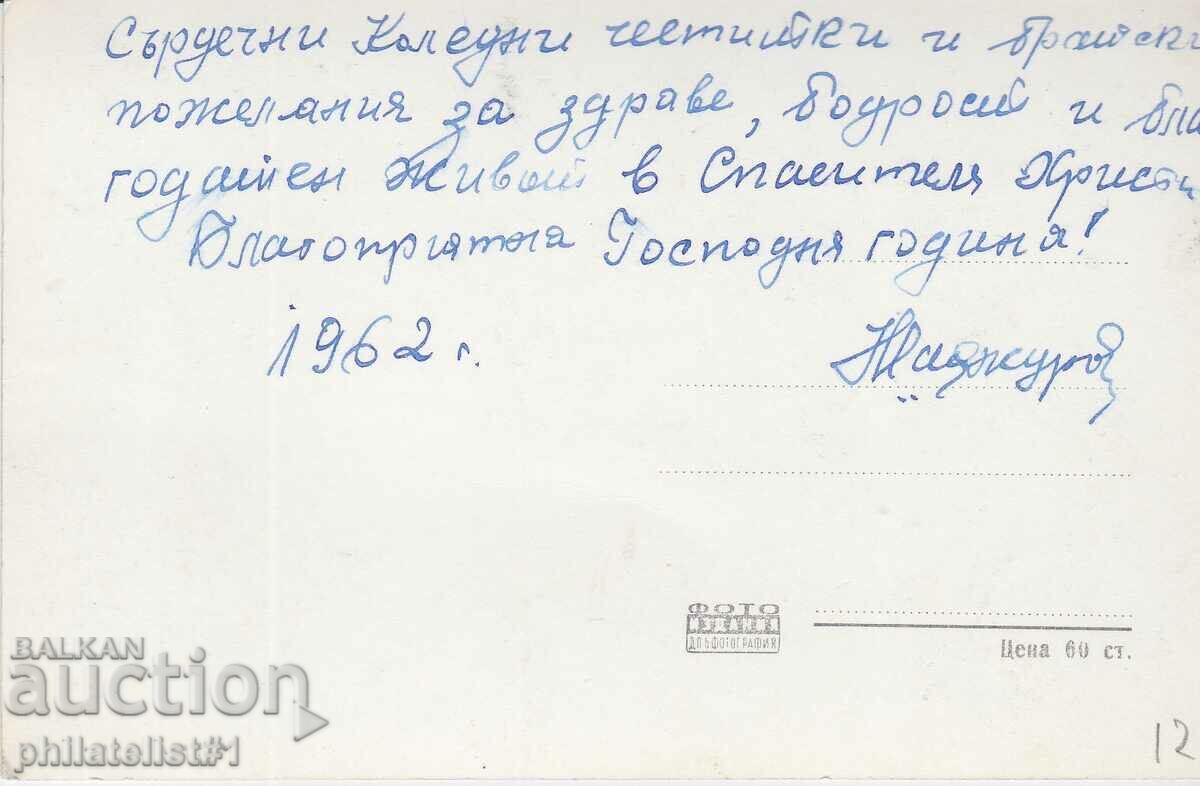 Сърдечни Коледни честитки и братски
пожелания за здраве, бодрост и бла
годатен живот в Спасителя Христа
Благоприятна Господня година!
1962 г.
ФОТО
ДП БЪЛГФОТОГРАФИЯ
Цена 60 ст.
BALKAN
auction
philatelist#1
12